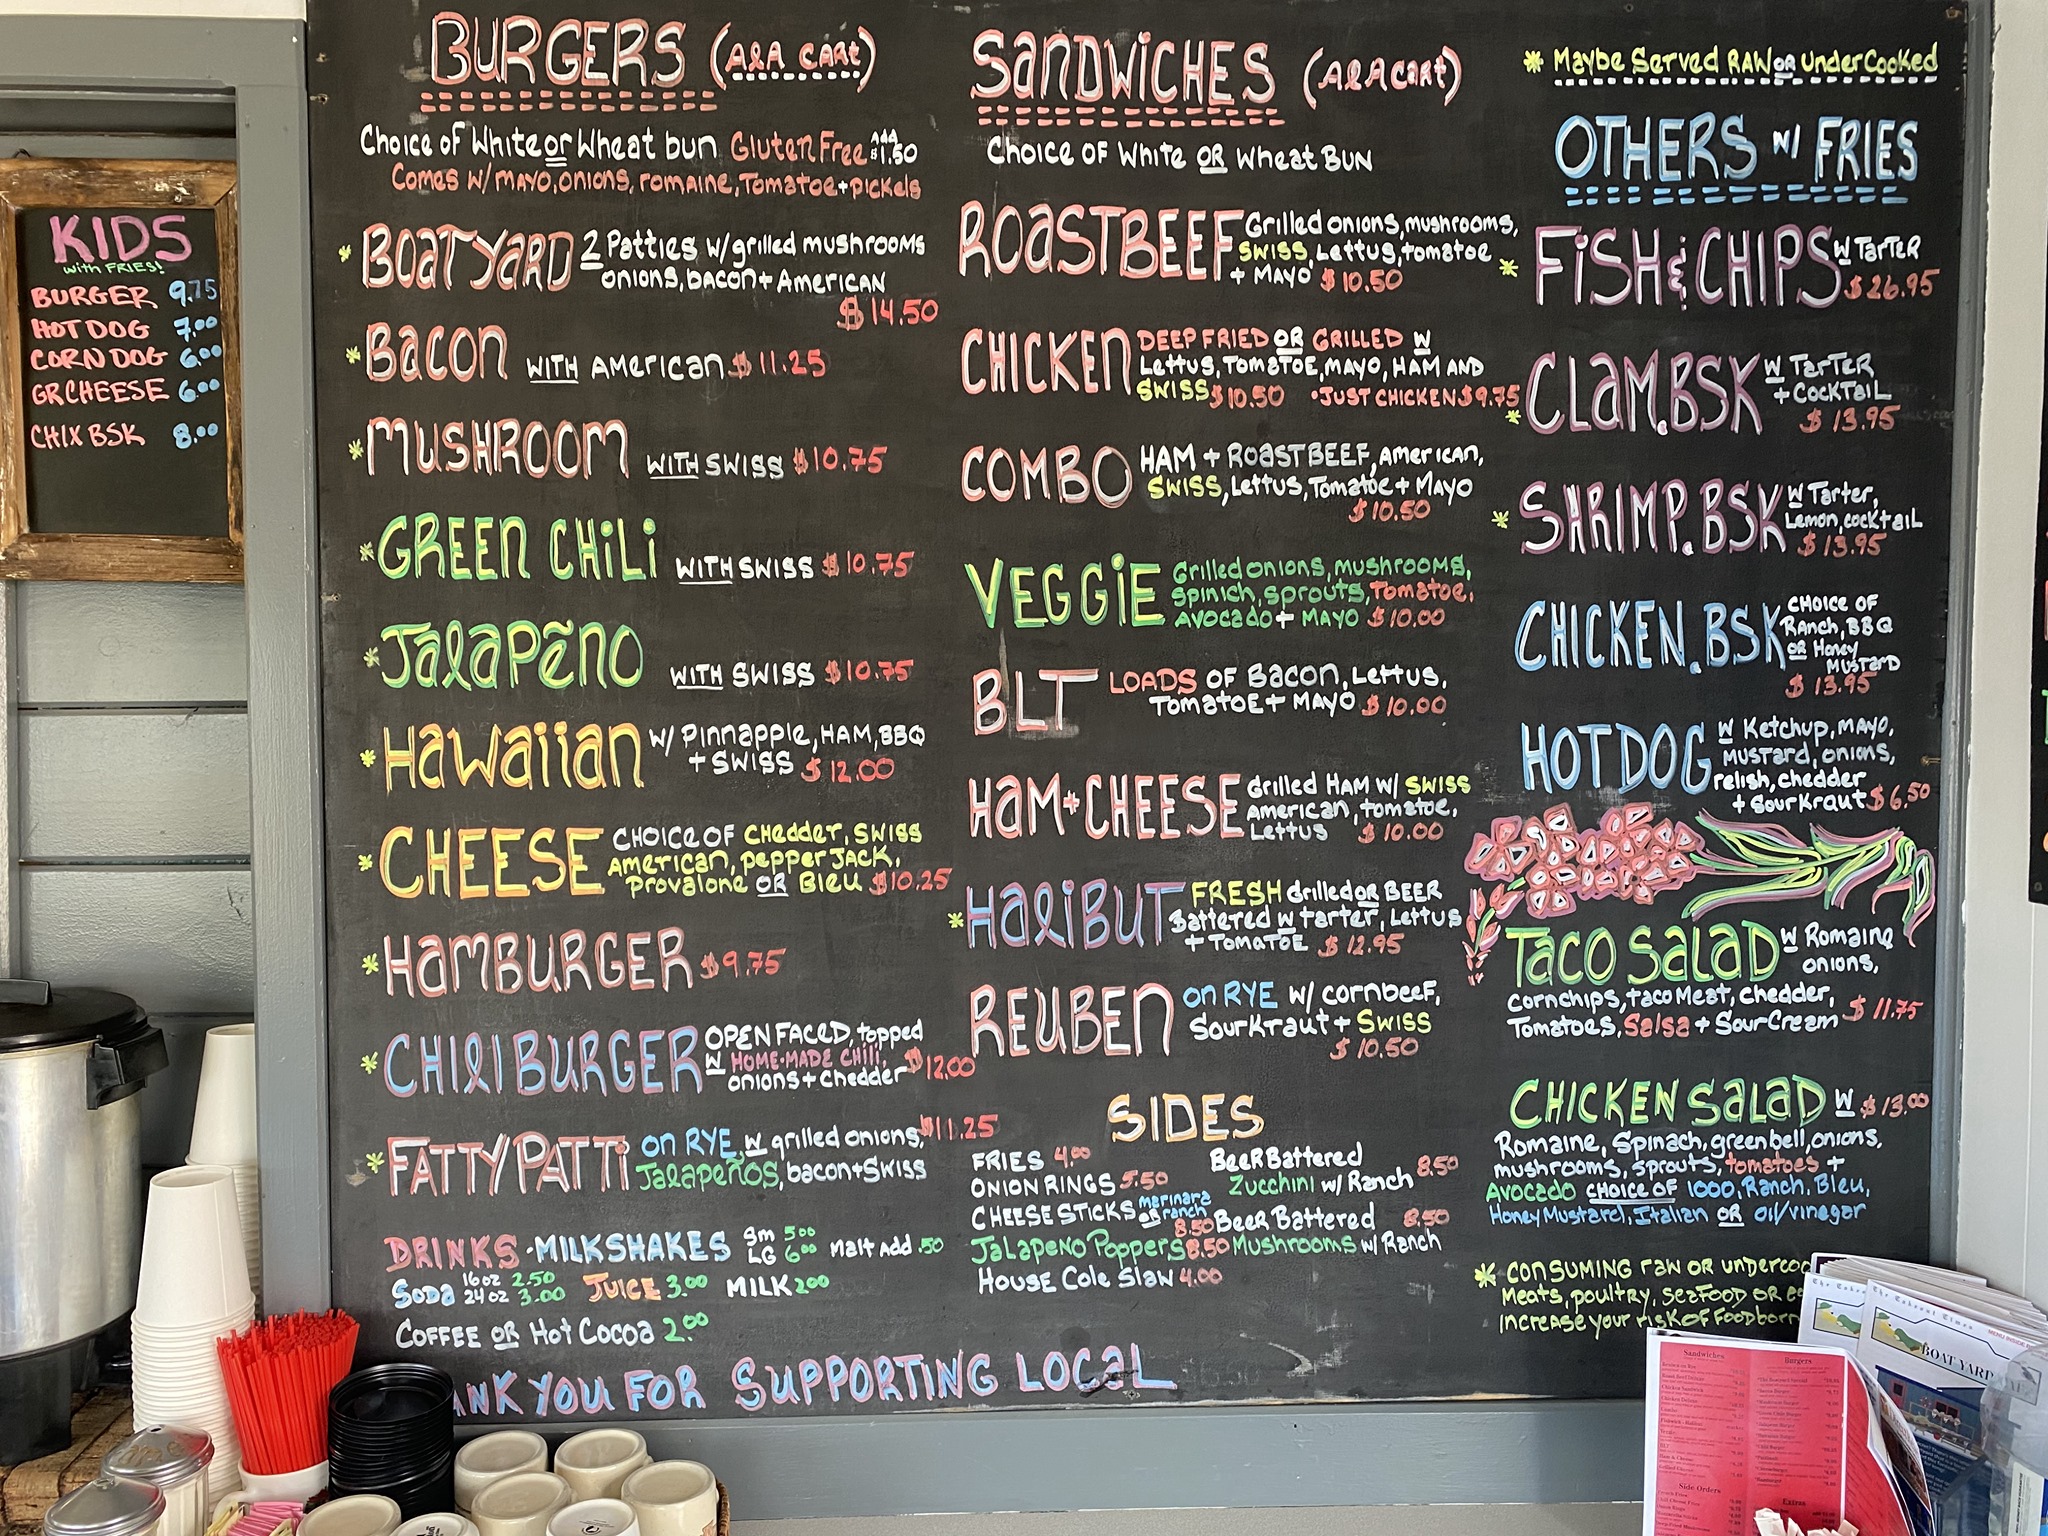 KIDS
with FRIES!
BURGER 9.75
HOT DOG 7.00
CORN DOG 6.00
GR CHEESE 6.00
CHIX BSK 8.00
BURGERS (AlA CArt)
Choice of White or Wheat bun Gluten Free Add $1.50
Comes w/ mayo, onions, romaine, Tomatoe + pickels
* BOATYARD 2 Patties w/ grilled mushrooms
onions, bacon + American
$14.50
* Bacon WITH American $11.25
* MUSHROOM WITH SWISS $10.75
* GREEN CHiLi WITH SWISS $10.75
* Jalapeño WITH SWISS $10.75
* Hawaiian w/ Pinnapple, HAM, BBQ
+ SWISS $12.00
* CHEESE CHOICE OF Chedder, SWISS
American, pepper JACK,
Provalone OR Bleu $10.25
* HAMBURGER $9.75
* CHiliBURGER OPEN FACED, topped
w HOME-MADE CHili,
onions + chedder $12.00
* FATTY PATTi on RYE w grilled onions, $11.25
Jalapeños, bacon + Swiss
DRINKS • MILKSHAKES Sm 5.00
LG 6.00 Malt Add .50
Soda 16 oz 2.50
24 oz 3.00 JUICE 3.00 MILK 2.00
COFFEE OR Hot Cocoa 2.00
ANK YOU FOR SUPPORTING LOCAL
SANDWICHES (AlA CArt)
Choice OF White OR Wheat BUN
ROASTBEEF Grilled onions, mushrooms,
SWISS, Lettus, tomatoe
+ MAYO $10.50
CHICKEN DEEP FRIED OR GRILLED W
Lettus, TOMATOE, MAYO, HAM AND
SWISS $10.50 • JUST CHICKEN $9.75
COMBO HAM + ROASTBEEF, American,
SWISS, Lettus, Tomatoe + MAYO
$10.50
VEGGiE Grilled onions, mushrooms,
Spinich, sprouts, Tomatoe,
Avocado + MAYO $10.00
BLT LOADS OF Bacon, Lettus,
Tomatoe + MAYO $10.00
HAM + CHEESE Grilled HAM w/ SWISS
American, tomatoe,
Lettus $10.00
* HALiBUT FRESH Grilled OR BEER
Battered w tarter, Lettus
+ TOMATOE $12.95
REUBEN on RYE w/ cornbeeF,
SourKraut + SWISS
$10.50
SIDES
FRIES 4.00
ONION RINGS 5.50
CHEESE STICKS merinara
OR ranch
8.50
Jalapeno Poppers 8.50
House Cole Slaw 4.00
BeeR Battered
Zucchini w/ Ranch 8.50
BeeR Battered 8.50
Mushrooms w/ Ranch
* Maybe Served RAW OR underCooked
OTHERS w/ FRIES
* FiSH & CHIPS w TarteR
$26.95
* CLAM.BSK w TarTeR
+ COCKTAiL
$13.95
* SHRIMP.BSK w Tarter,
Lemon, cocktail
$13.95
CHICKEN.BSK CHOICE OF
Ranch, BBQ
OR Honey
MUSTARD
$13.95
HOTDOG w Ketchup, mayo,
mustard, onions,
relish, chedder
+ SourKraut $6.50
TACO SALAD w Romaine
onions,
Cornchips, taco Meat, chedder,
Tomatoes, Salsa + Sour Cream $11.75
CHICKEN SALAD w $13.00
Romaine, Spinach, green bell, onions,
mushrooms, sprouts, tomatoes +
Avocado CHOICE OF 1000, Ranch, Bleu,
Honey Mustard, Italian OR oil/vinegar
* CONSUMING raw OR undercoo
Meats, poultry, seaFOOD OR
increase your risk OF Foodborn
MENU INSIDE
BOAT YARD
Sandwiches
Side Orders
Burgers
Extras